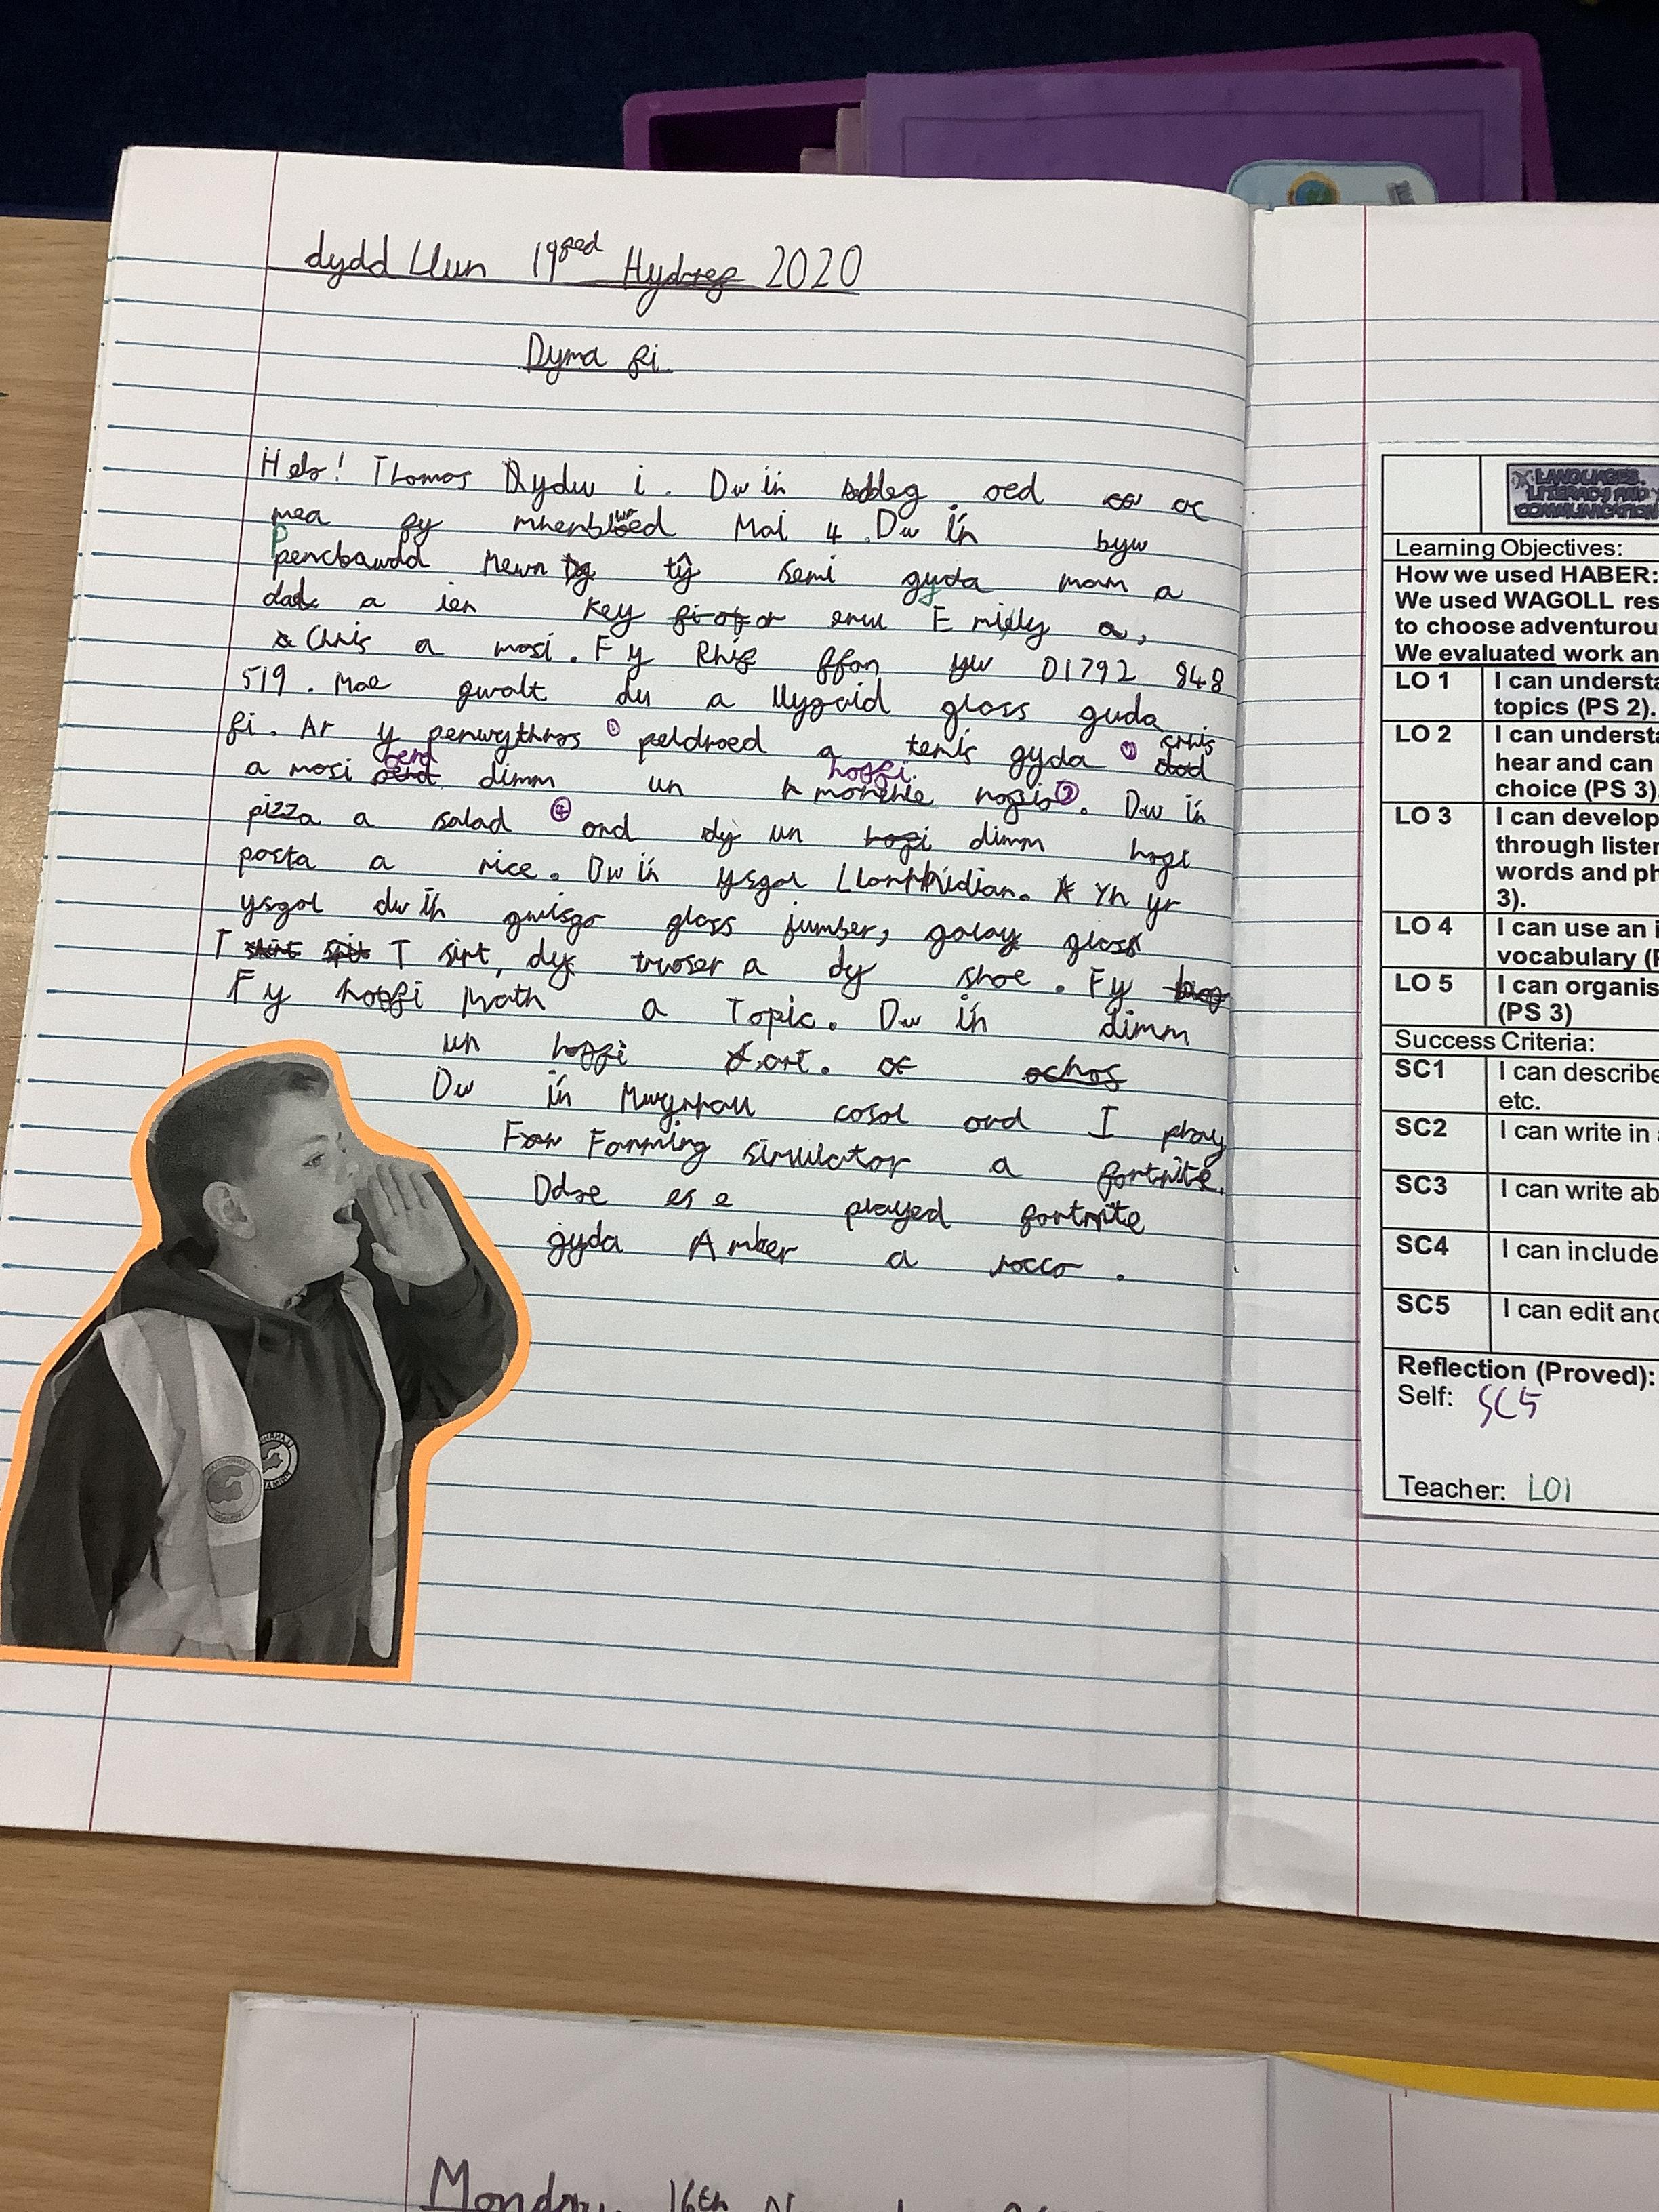 dydd Llun 19eed Hydref 2020
Dyma fi
Helo! Thomas Rydw i. Dw i'n oed ac
mea fy mhenblwed Mai 4. Dw i'n byw
Penclawdd Mewn tŷ semi gyda mam a
dad a ien key or enw Emily a,
Chris a mosi. Fy Rhif ffon yw 01792 848
519. Mae gwalt du a llygaid glass guda
fi. Ar y penwythnos ① peldroed a tenis gyda ① chris
a mosi ond dimm un hoffi. ②. Dw i'n
pizza a salad ④ ond dy un dimm hoffi
pasta a rice. Dw i'n ysgol Llanrhidian. Yn yr
ysgol dw i'n gwisgo glass jumber, golay glass
T T sirt, dy trwoser a dy shoe. Fy
Fy hoffi Math a Topic. Dw i'n dimm
un hoffi art. ac
Dw i'n Mwynhau casal ond I play
Farming simulator a fortnite.
Ddoe es e played fortnite
gyda Amber a rocco.
LANGUAGES,
LITERACY AND
COMMUNICATION
Learning Objectives:
How we used HABER:
We used WAGOLL res
to choose adventurou
We evaluated work an
LO 1 I can understa
topics (PS 2).
LO 2 I can understa
hear and can
choice (PS 3).
LO 3 I can develop
through listen
words and ph
3).
LO 4 I can use an i
vocabulary (P
LO 5 I can organis
(PS 3)
Success Criteria:
SC1 I can describe
etc.
SC2 I can write in
SC3 I can write ab
SC4 I can include
SC5 I can edit and
Reflection (Proved):
Self: SC5
Teacher: LO1
Monday 16th